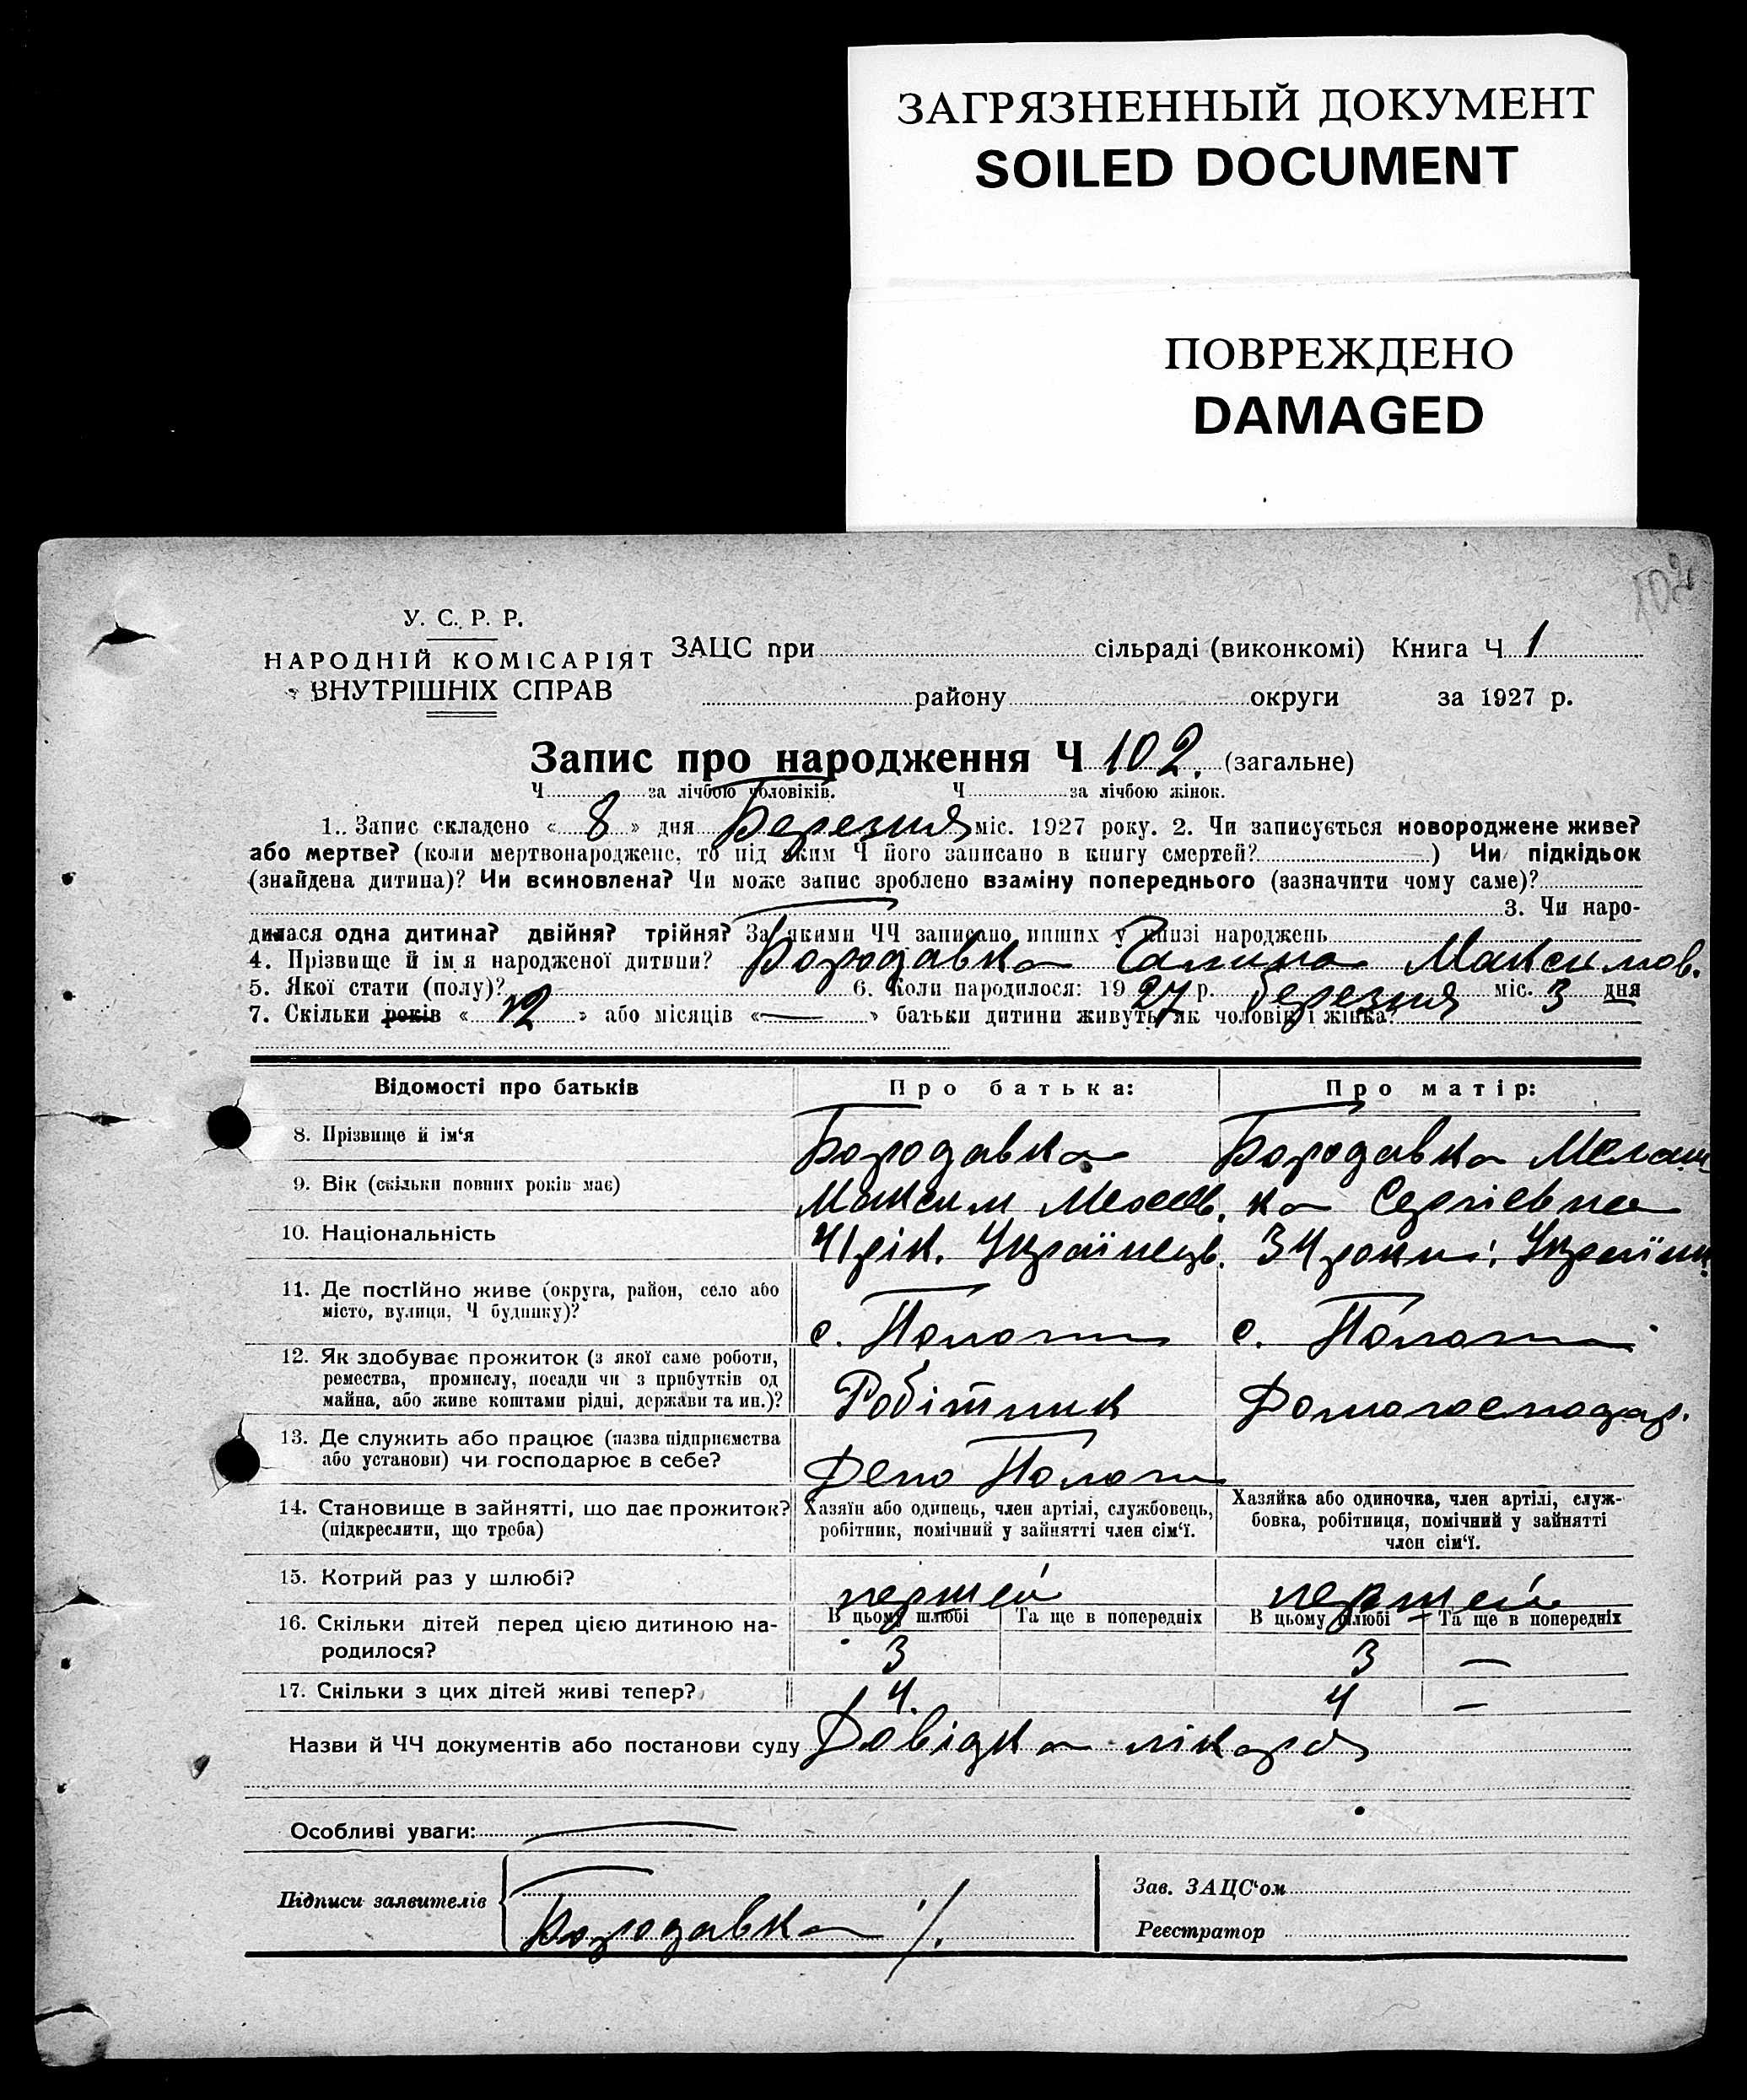 ЗАГРЯЗНЕННЫЙ ДОКУМЕНТ
SOILED DOCUMENT
ПОВРЕЖДЕНО
DAMAGED
102
У. С. Р. Р.
НАРОДНІЙ КОМІСАРІЯТ
ВНУТРІШНІХ СПРАВ
ЗАЦС при сільраді (виконкомі) Книга Ч 1
району округи за 1927 р.
Запис про народження Ч 102. (загальне)
Ч за лічбою чоловіків. Ч за лічбою жінок.
1. Запис складено « 8 » дня Березня міс. 1927 року. 2. Чи записується новороджене живе?
або мертве? (коли мертвонароджене, то під яким Ч його записано в книгу смертей? ) Чи підкідьок
(знайдена дитина)? Чи всиновлена? Чи може запис зроблено взаміну попереднього (зазначити чому саме)?
3. Чи наро-
дилася одна дитина? двійня? трійня? За якими ЧЧ записано инших у книзі народжень
4. Прізвище й ім'я народженої дитини? Бородавка Галина Максимов.
5. Якої стати (полу)? 6. Коли народилося: 1927 р. березня міс. 3 дня
7. Скільки років « 12 » або місяців « — » батьки дитини живуть як чоловік і жінка?
Відомості про батьків Про батька: Про матір:
8. Прізвище й ім‘я Бородавка Бородавка Мелаш
9. Вік (скільки повних років має) Максим ка Сергієвна
10. Національність 41 рік. Українець. 34 роки
11. Де постійно живе (округа, район, село або
місто, вулиця, Ч будинку)? с. Пологи с. Пологи
12. Як здобуває прожиток (з якої саме роботи,
ремества, промислу, посади чи з прибутків од
майна, або живе коштами рідні, держави та ин.)? Робітник Домогосподар.
13. Де служить або працює (назва підприємства
або установи) чи господарює в себе? Депо Пологи
14. Становище в зайнятті, що дає прожиток?
(підкреслити, що треба)
Хазяїн або одинець, член артілі, службовець,
робітник, помічний у зайнятті член сім‘ї.
Хазяйка або одиночка, член артілі, служ-
бовка, робітниця, помічний у зайнятті
член сім‘ї.
15. Котрий раз у шлюбі? першей першей
16. Скільки дітей перед цією дитиною на-
родилося?
В цьому шлюбі Та ще в попередніх В цьому шлюбі Та ще в попередніх
3 3 —
17. Скільки з цих дітей живі тепер? 4. 4 —
Назви й ЧЧ документів або постанови суду Довідка лікаря
Особливі уваги: —
Підписи заявителів Бородавка
Зав. ЗАЦС‘ом
Реєстратор